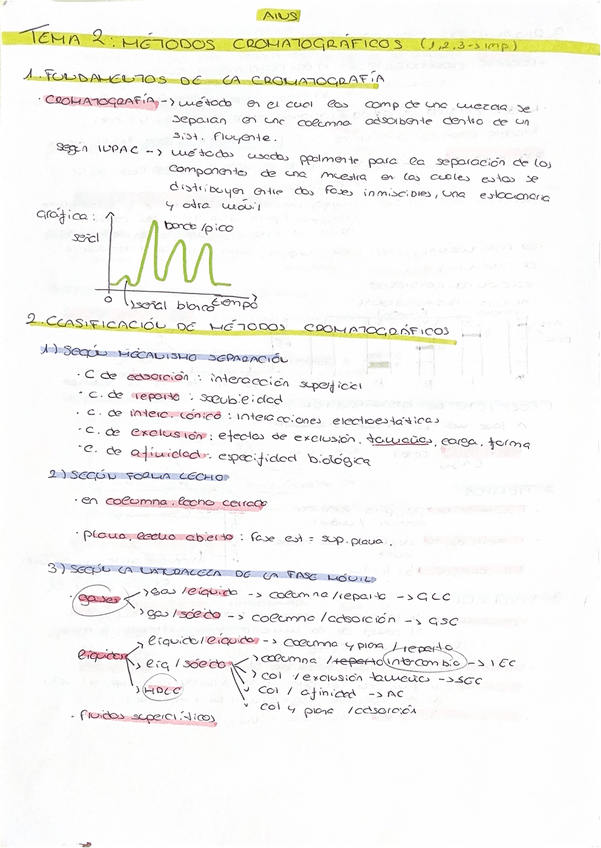 AINS
TEMA 2: MÉTODOS CROMATOGRÁFICOS (1,2,3-simp)
1. FUNDAMENTOS DE LA CROMATOGRAFÍA
· CROMATOGRAFÍA -> método en el cual los comp de una mezcla se
separan en una columna adsorbente dentro de un
sist. fluyente.
según IUPAC -> métodos usados ppalmente para la separación de los
componentes de una muestra en los cuales estos se
distribuyen entre dos fases inmiscibles, una estacionaria
y otra móvil
Gráfica:
señal
banda/pico
0
señal blanco
tiempo
2. CLASIFICACIÓN DE MÉTODOS CROMATOGRÁFICOS
1) SEGÚN MECANISMO SEPARACIÓN
· C de adsorción: interacción superficial
· C. de reparto: solubilidad
· C. de interc. iónico: interacciones electroestáticas
· C. de exclusión: efectos de exclusión, tamaños, carga, forma
· C. de afinidad: especifidad biológica
2) SEGÚN FORMA LECHO
· en columna, lecho cerrado
· plano, lecho abierto: fase est = sup. plana.
3) SEGÚN LA NATURALEZA DE LA FASE MÓVIL
· gases
gas/líquido -> columna/reparto -> GLC
gas/sólido -> columna/adsorción -> GSC
líquidos
líquido/líquido -> columna y plana/reparto
liq/sólido
columna/reparto intercambio -> IEC
col/exclusión tamaños -> SEC
col/afinidad -> AC
col y plana/adsorción
HPLC
· Fluidos supercríticos